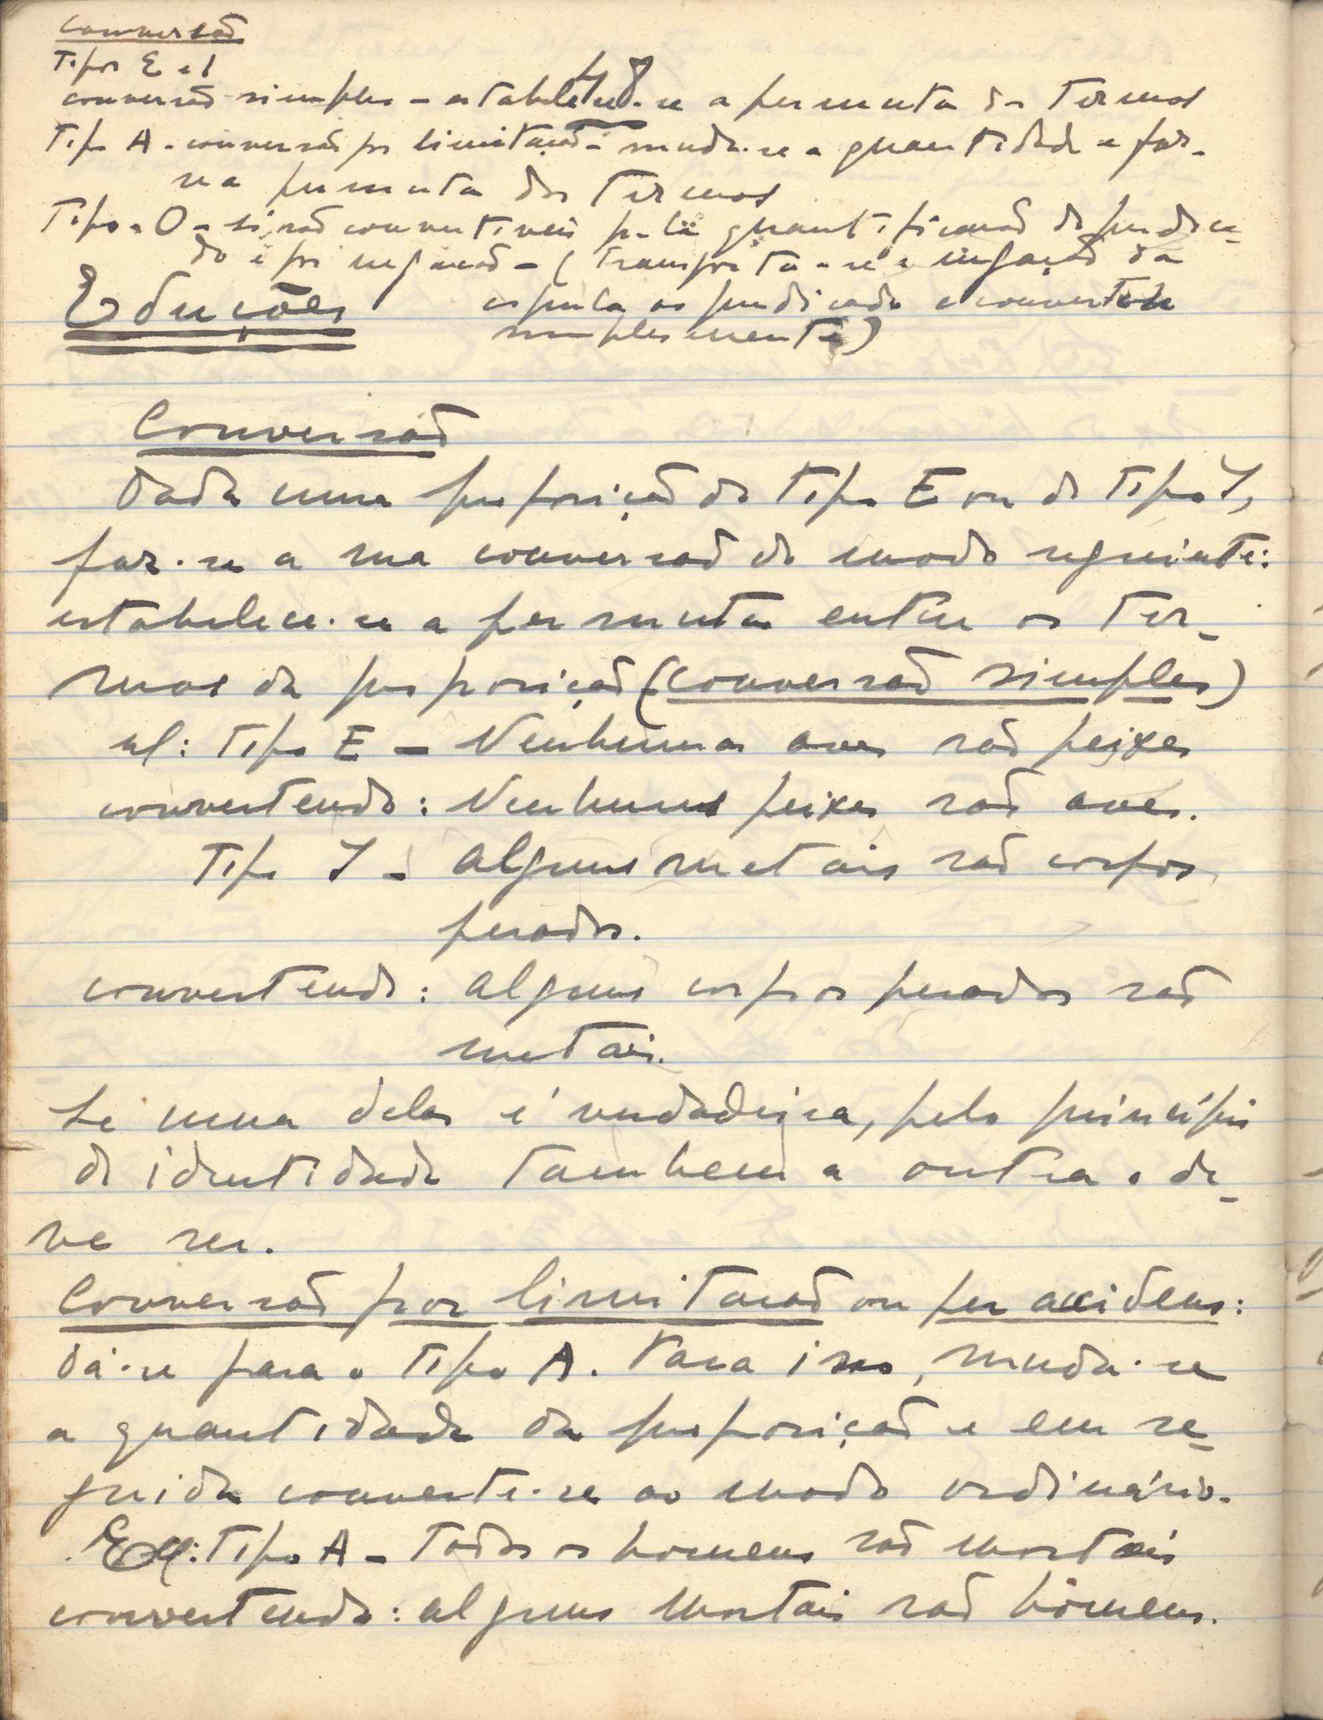 Conversão
Tipos E e I
48
conversão simples - estabelece-se a permuta dos termos
Tipo A - conversão por limitação - muda-se a quantidade e faz-
se a permuta dos termos
Tipo - O - só são convertíveis pela quantificação do predica-
do e por negação - (transporta-se a negação da
Eduções
cópula ao predicado e converte-se
simplesmente)
Conversão
Dada uma proposição do tipo E ou do tipo I,
faz-se a sua conversão do modo seguinte:
estabelece-se a permuta entre os ter-
mos da proposição (conversão simples)
ex: Tipo E - Nenhumas aves são peixes
convertendo: Nenhuns peixes são aves.
Tipo I - alguns metais são corpos
pesados.
convertendo: alguns corpos pesados são
metais.
Se uma delas é verdadeira, pelo princípio
de identidade tambem a outra o de-
ve ser.
Conversão por limitação ou per accidens:
dá-se para o tipo A. Para isso, muda-se
a quantidade da proposição e em se-
guida converte-se ao modo ordinário.
Ex: Tipo A - Todos os homens são mortais
convertendo: alguns mortais são homens.